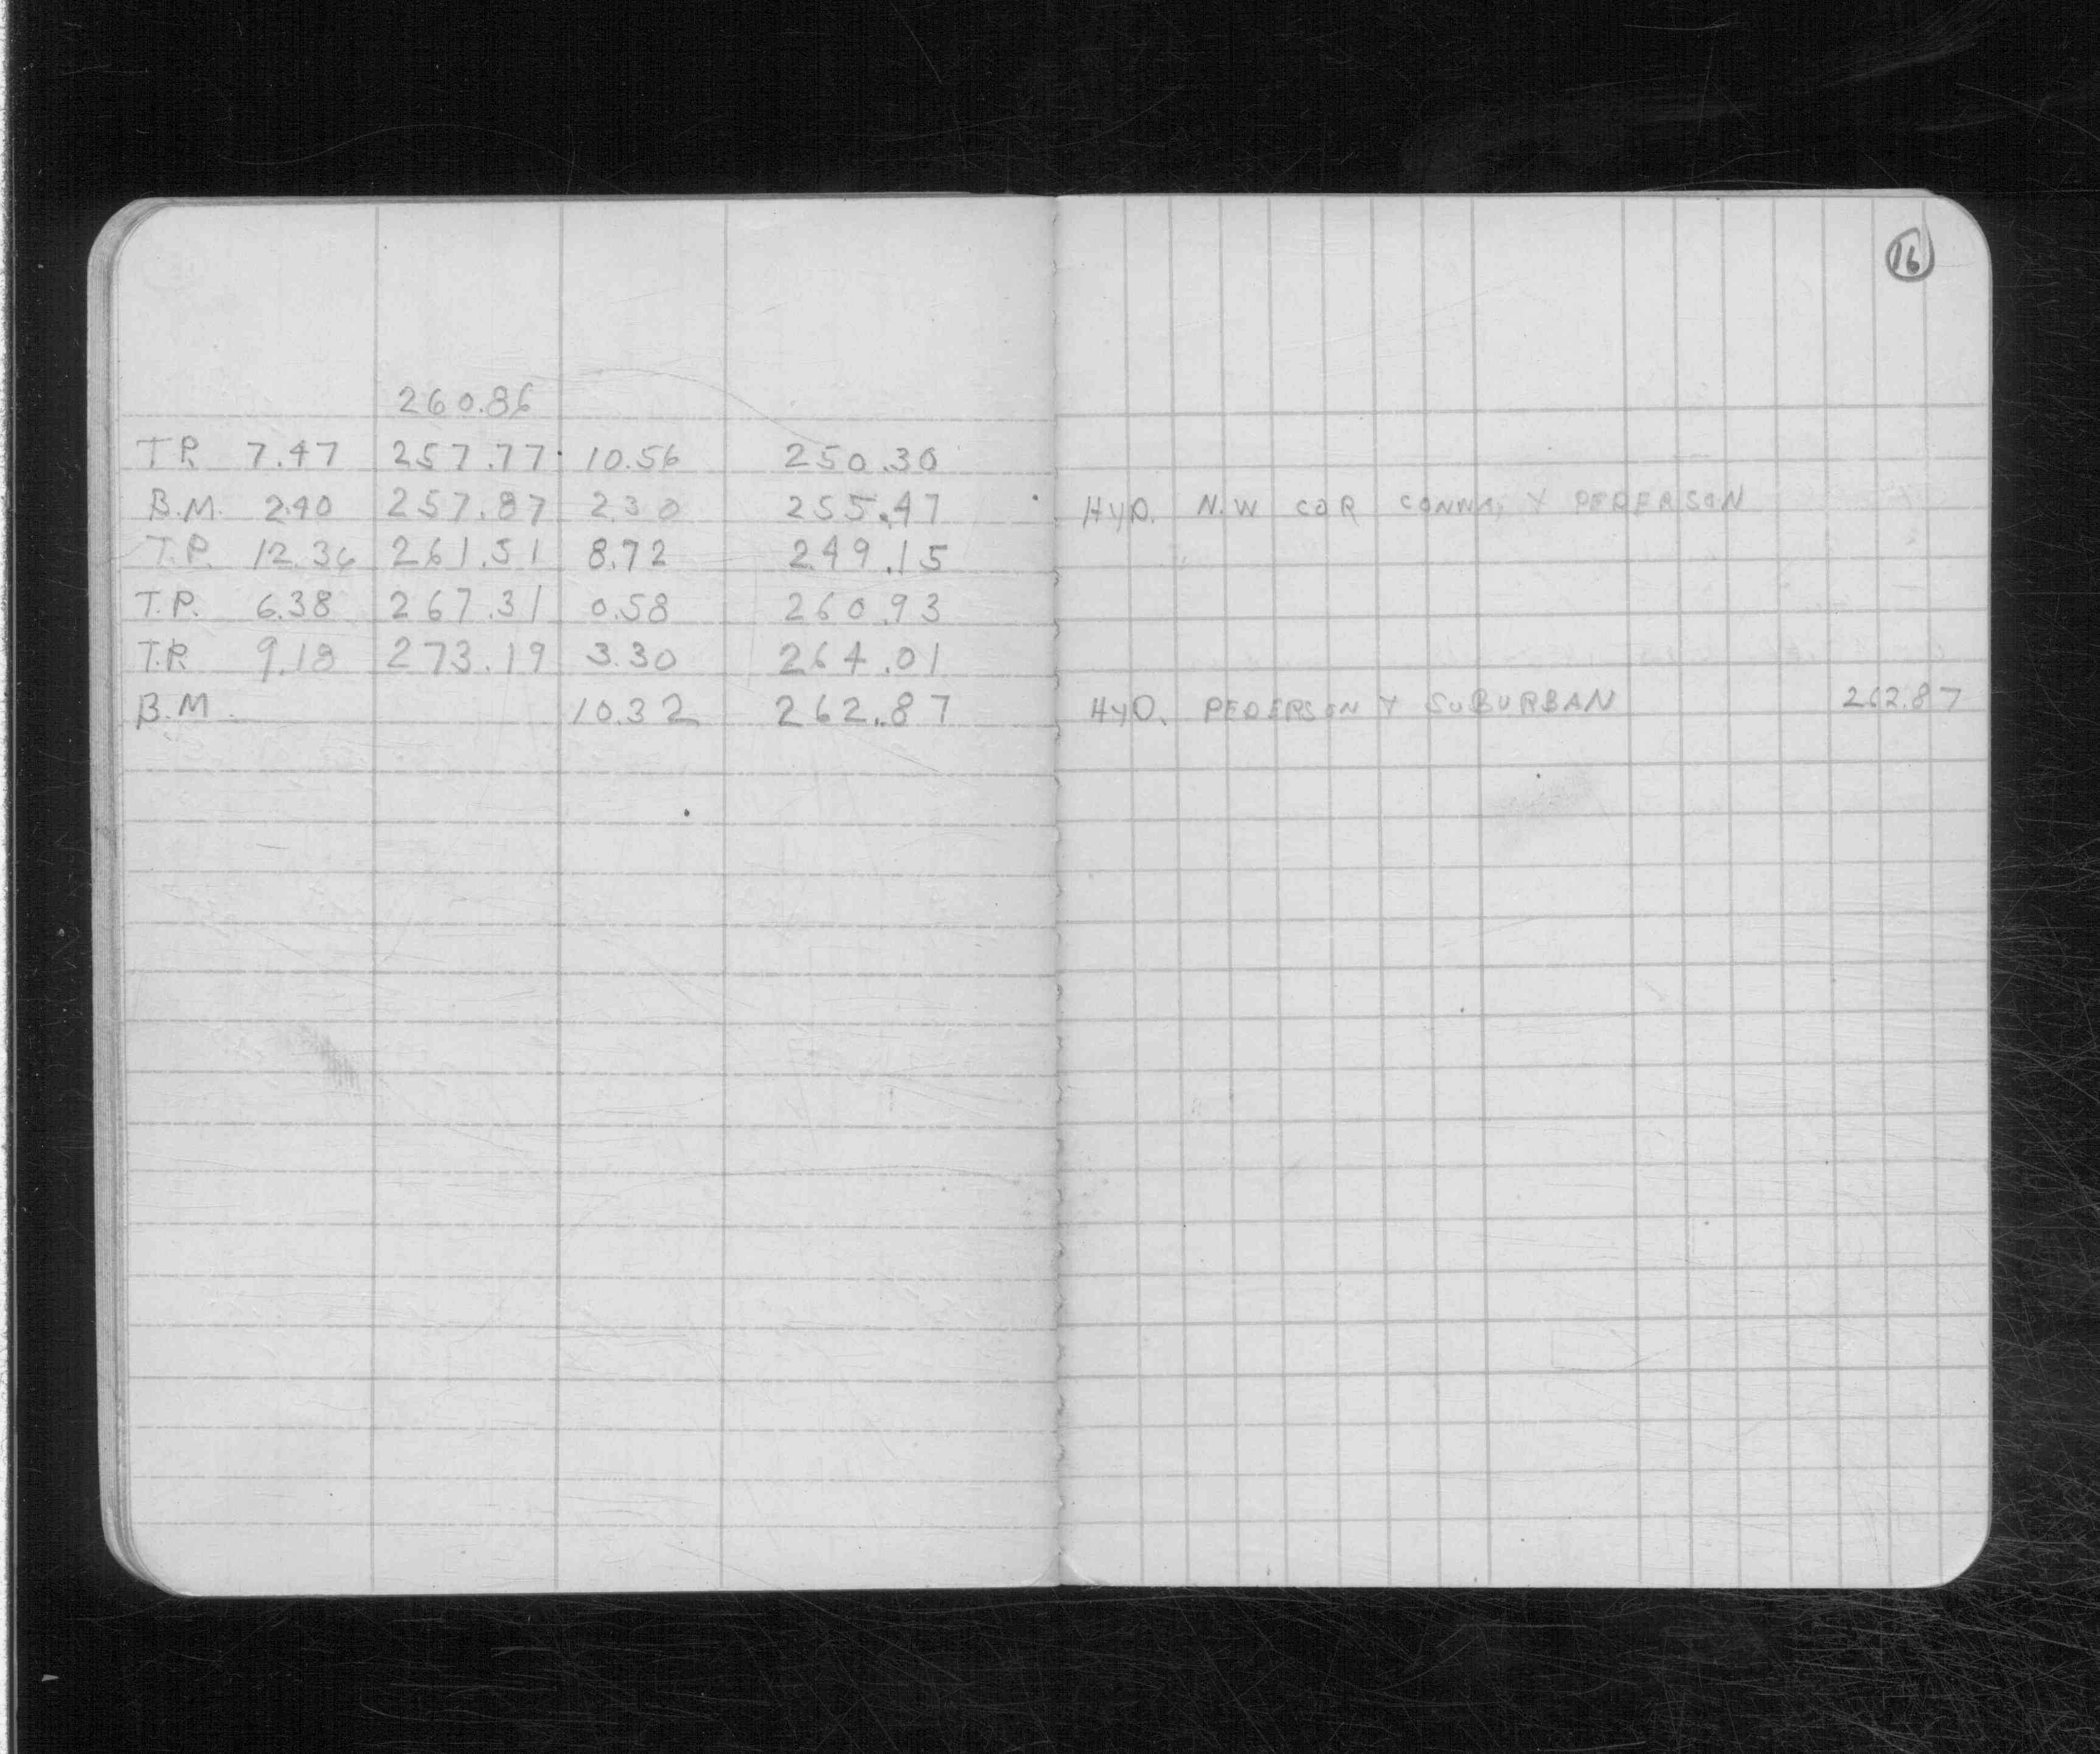 16
260.86
T.P. 7.47 257.77 10.56 250.30
B.M. 2.40 257.87 2.30 255.47 HYD. N.W COR Y PEDERSON
T.P. 12.36 261.51 8.72 249.15
T.P. 6.38 267.31 0.58 260.93
T.P. 9.18 273.19 3.30 264.01
B.M. 10.32 262.87 HYD. PEDERSON Y SUBURBAN 262.87